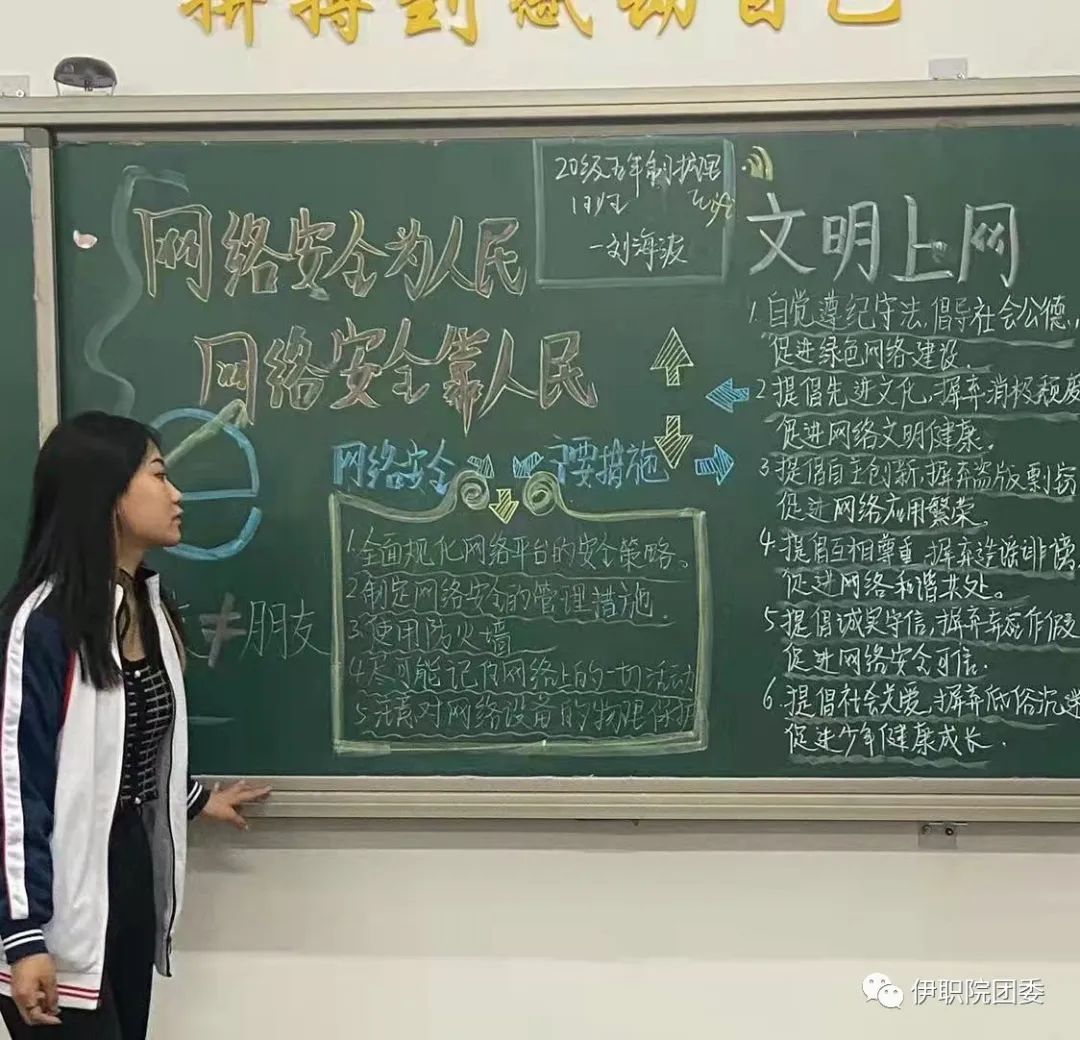 拼搏到感动自己
20级五年制护理
1班
wifi
一刘海波
网络安全为人民
网络安全靠人民
网络安全 主要措施
1.全面规化网络平台的安全策略。
2.制定网络安全的管理措施.
3.使用防火墙
4.尽可能记住网络上的一切活动
5.注意对网络设备的物理保护
≠朋友
文明上网
1.自觉遵纪守法,倡导社会公德,
促进绿色网络建设.
2.提倡先进文化,摒弃消极颓废
促进网络文明健康.
3.提倡自主创新,摒弃盗版剽窃
促进网络应用繁荣.
4.提倡互相尊重,摒弃造谣诽谤,
促进网络和谐共处。
5.提倡诚实守信,摒弃弄虚作假
促进网络安全可信.
6.提倡社会关爱,摒弃低俗沉迷
促进少年健康成长.
伊职院团委